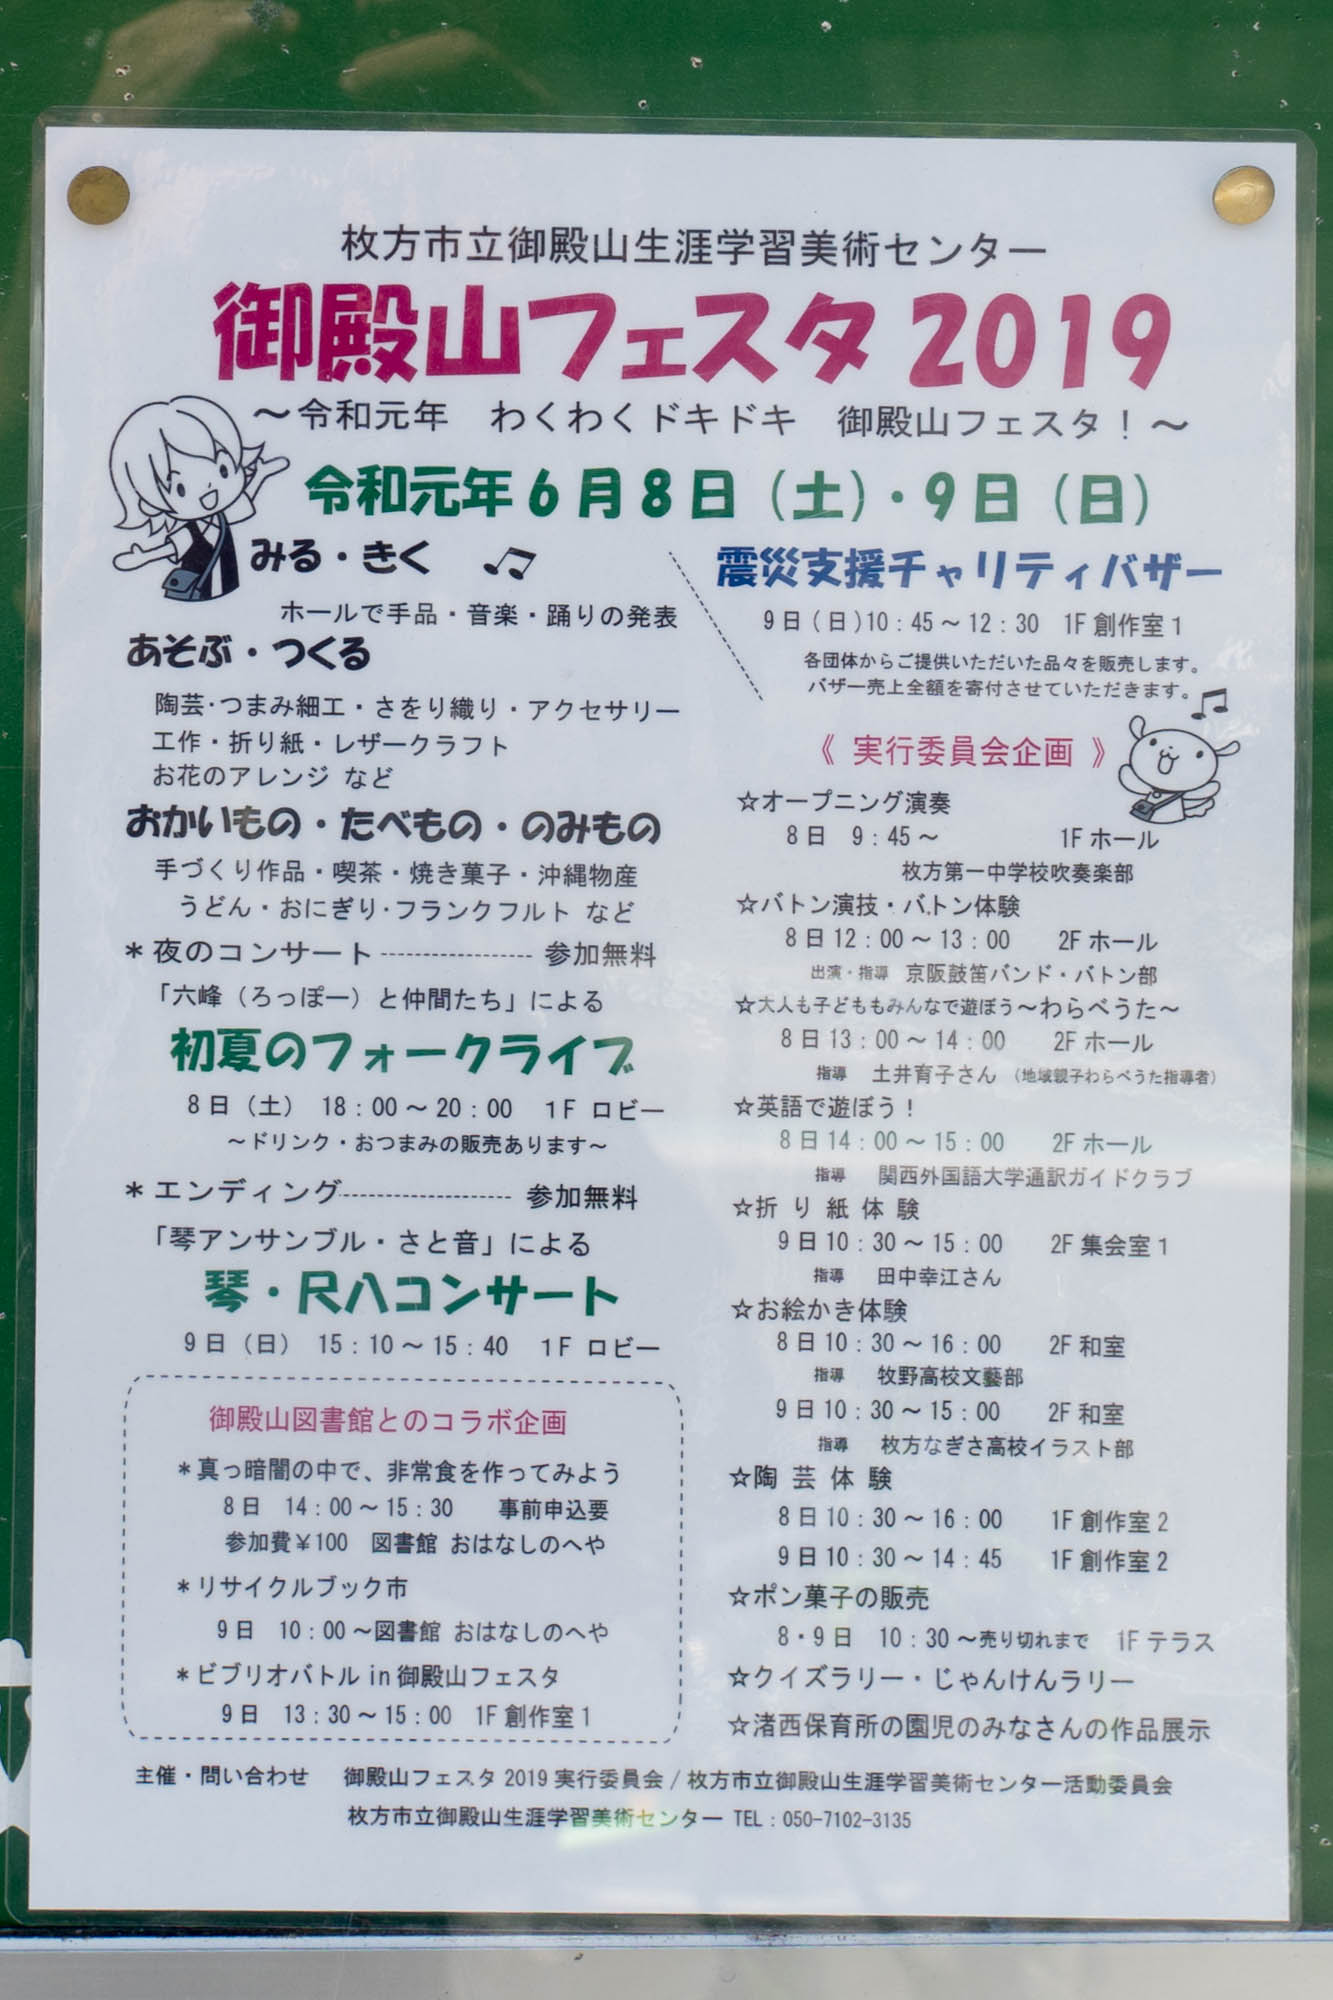 枚方市立御殿山生涯学習美術センター
御殿山フェスタ2019
～令和元年　わくわくドキドキ　御殿山フェスタ！～
令和元年6月8日（土）・9日（日）
みる・きく
ホールで手品・音楽・踊りの発表
あそぶ・つくる
陶芸・つまみ細工・さをり織り・アクセサリー
工作・折り紙・レザークラフト
お花のアレンジ など
おかいもの・たべもの・のみもの
手づくり作品・喫茶・焼き菓子・沖縄物産
うどん・おにぎり・フランクフルト など
＊夜のコンサート------------------ 参加無料
「六峰（ろっぽー）と仲間たち」による
初夏のフォークライブ
8日（土） 18：00～20：00　1F ロビー
～ドリンク・おつまみの販売あります～
＊エンディング-------------------- 参加無料
「琴アンサンブル・さと音」による
琴・尺八コンサート
9日（日） 15：10～15：40　1F ロビー
御殿山図書館とのコラボ企画
＊真っ暗闇の中で、非常食を作ってみよう
8日　14：00～15：30　　事前申込要
参加費￥100　図書館 おはなしのへや
＊リサイクルブック市
9日　10：00～図書館 おはなしのへや
＊ビブリオバトル in 御殿山フェスタ
9日　13：30～15：00　1F 創作室1
震災支援チャリティバザー
9日（日）10：45～12：30　1F 創作室1
各団体からご提供いただいた品々を販売します。
バザー売上全額を寄付させていただきます。
《 実行委員会企画 》
☆オープニング演奏
8日　9：45～　　　　1F ホール
枚方第一中学校吹奏楽部
☆バトン演技・バトン体験
8日12：00～13：00　　2F ホール
出演・指導　京阪鼓笛バンド・バトン部
☆大人も子どももみんなで遊ぼう～わらべうた～
8日13：00～14：00　　2F ホール
指導　土井育子さん （地域親子わらべうた指導者）
☆英語で遊ぼう！
8日14：00～15：00　　2F ホール
指導　関西外国語大学通訳ガイドクラブ
☆折り紙体験
9日10：30～15：00　　2F 集会室1
指導　田中幸江さん
☆お絵かき体験
8日10：30～16：00　　2F 和室
指導　牧野高校文藝部
9日10：30～15：00　　2F 和室
指導　枚方なぎさ高校イラスト部
☆陶芸体験
8日10：30～16：00　　1F 創作室2
9日10：30～14：45　　1F 創作室2
☆ポン菓子の販売
8・9日　10：30～売り切れまで　1F テラス
☆クイズラリー・じゃんけんラリー
☆渚西保育所の園児のみなさんの作品展示
主催・問い合わせ　御殿山フェスタ 2019 実行委員会 / 枚方市立御殿山生涯学習美術センター活動委員会
枚方市立御殿山生涯学習美術センター TEL：050-7102-3135